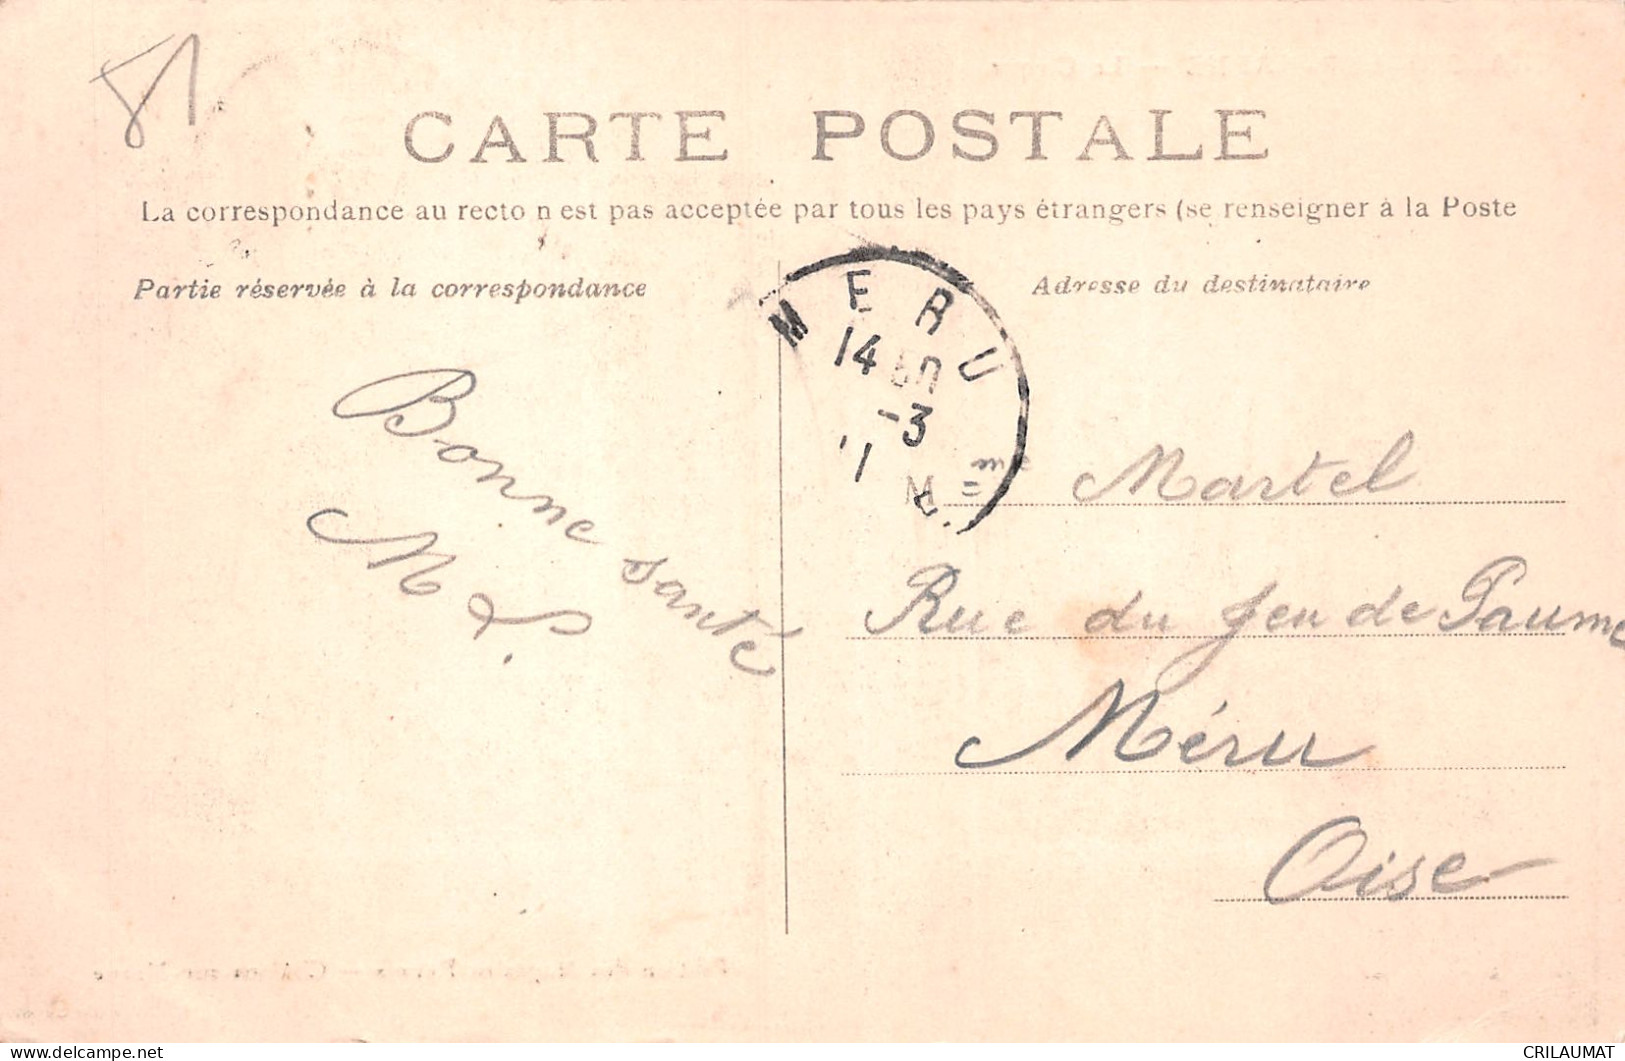 51
CARTE POSTALE
La correspondance au recto n est pas acceptée par tous les pays étrangers (se renseigner à la Poste
Partie réservée à la correspondance
Adresse du destinataire
MERU
14
-3
Bonne santé
M
Mme Martel
Rue du Jeu de Paume
Méru
Oise
CRILAUMAT